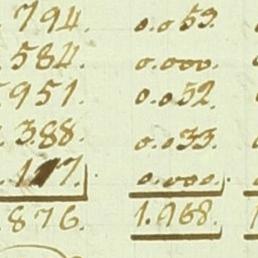 .794. 0.053.
.584. 0.000.
951. 0.052.
.388. 0.033.
0.000.
.876. 1.968.